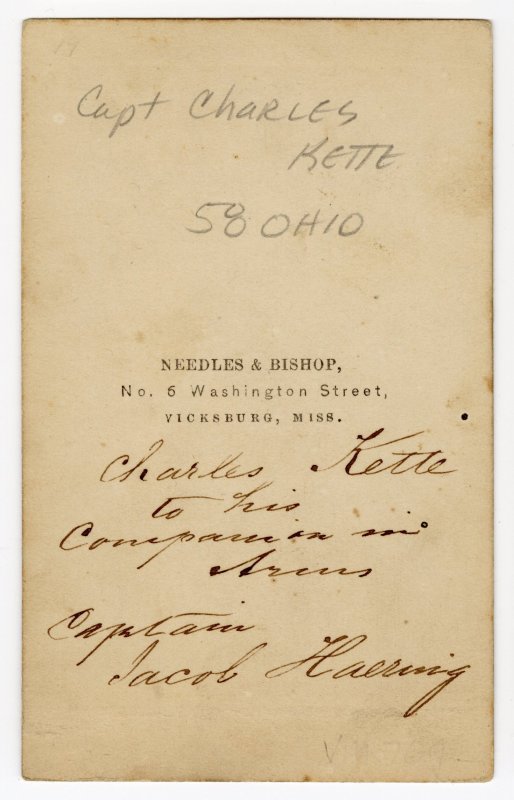 Capt Charles
Kette
58 OHIO
NEEDLES & BISHOP,
No. 6 Washington Street,
VICKSBURG, MISS.
Charles Kette
to his
Companion in
Arms
Captain
Jacob Haering